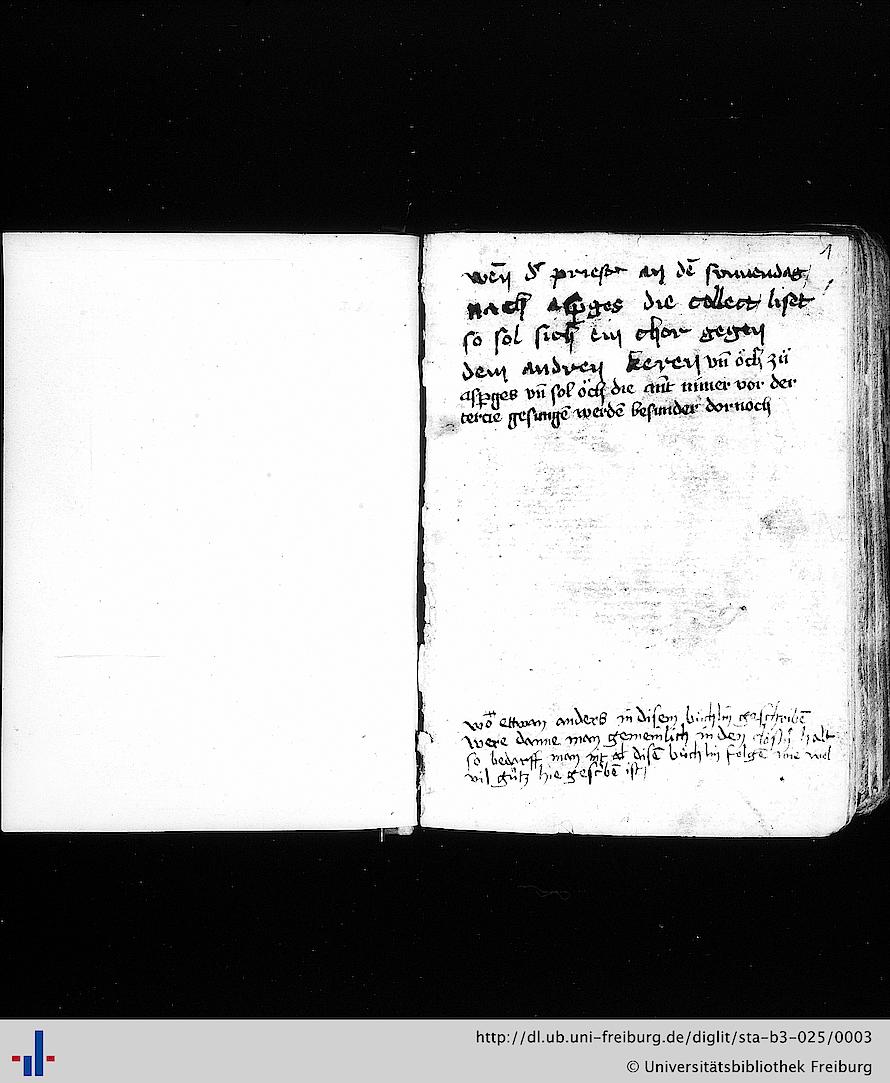 1
wēn dʼ priestʼ an dē sonnendag
nach asꝑges die collect list
so sol sich ein chor gegen
dem andren keren vn̄ öch zü
asꝑges vn̄ sol öch die nimer vor der
tercie gesungē werdē besunder dornoch
wo ettwan anders in disem büchlin geschribē
were danne man gemeinlich in den halt
so bedarff man nit disē büchlin folgē wie wol
vil gütz hie geschbē ist
http://dl.ub.uni-freiburg.de/diglit/sta-b3-025/0003
© Universitätsbibliothek Freiburg